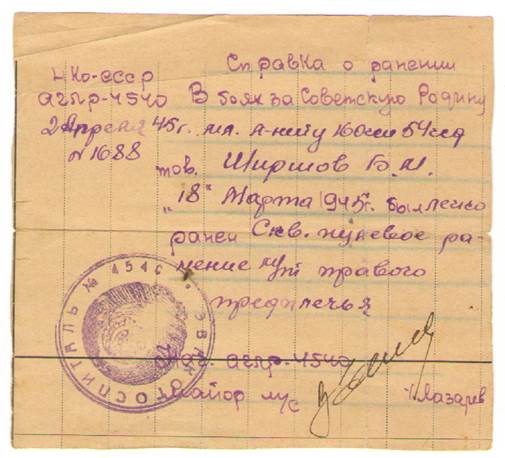 НКО-СССР
АГЛР-4540
2 Апреля 45г.
№1688
Справка о ранении
В боях за Советскую Родину
мл. л-нту
тов. Ширшов Б.М.
"18" Марта 1945г. был легко
ранен Скв. пулевое ра-
нение м/т правого
предплечья
Нач. АГЛР-4540
Майор м/с Лазарев
ГОСПИТАЛЬ №